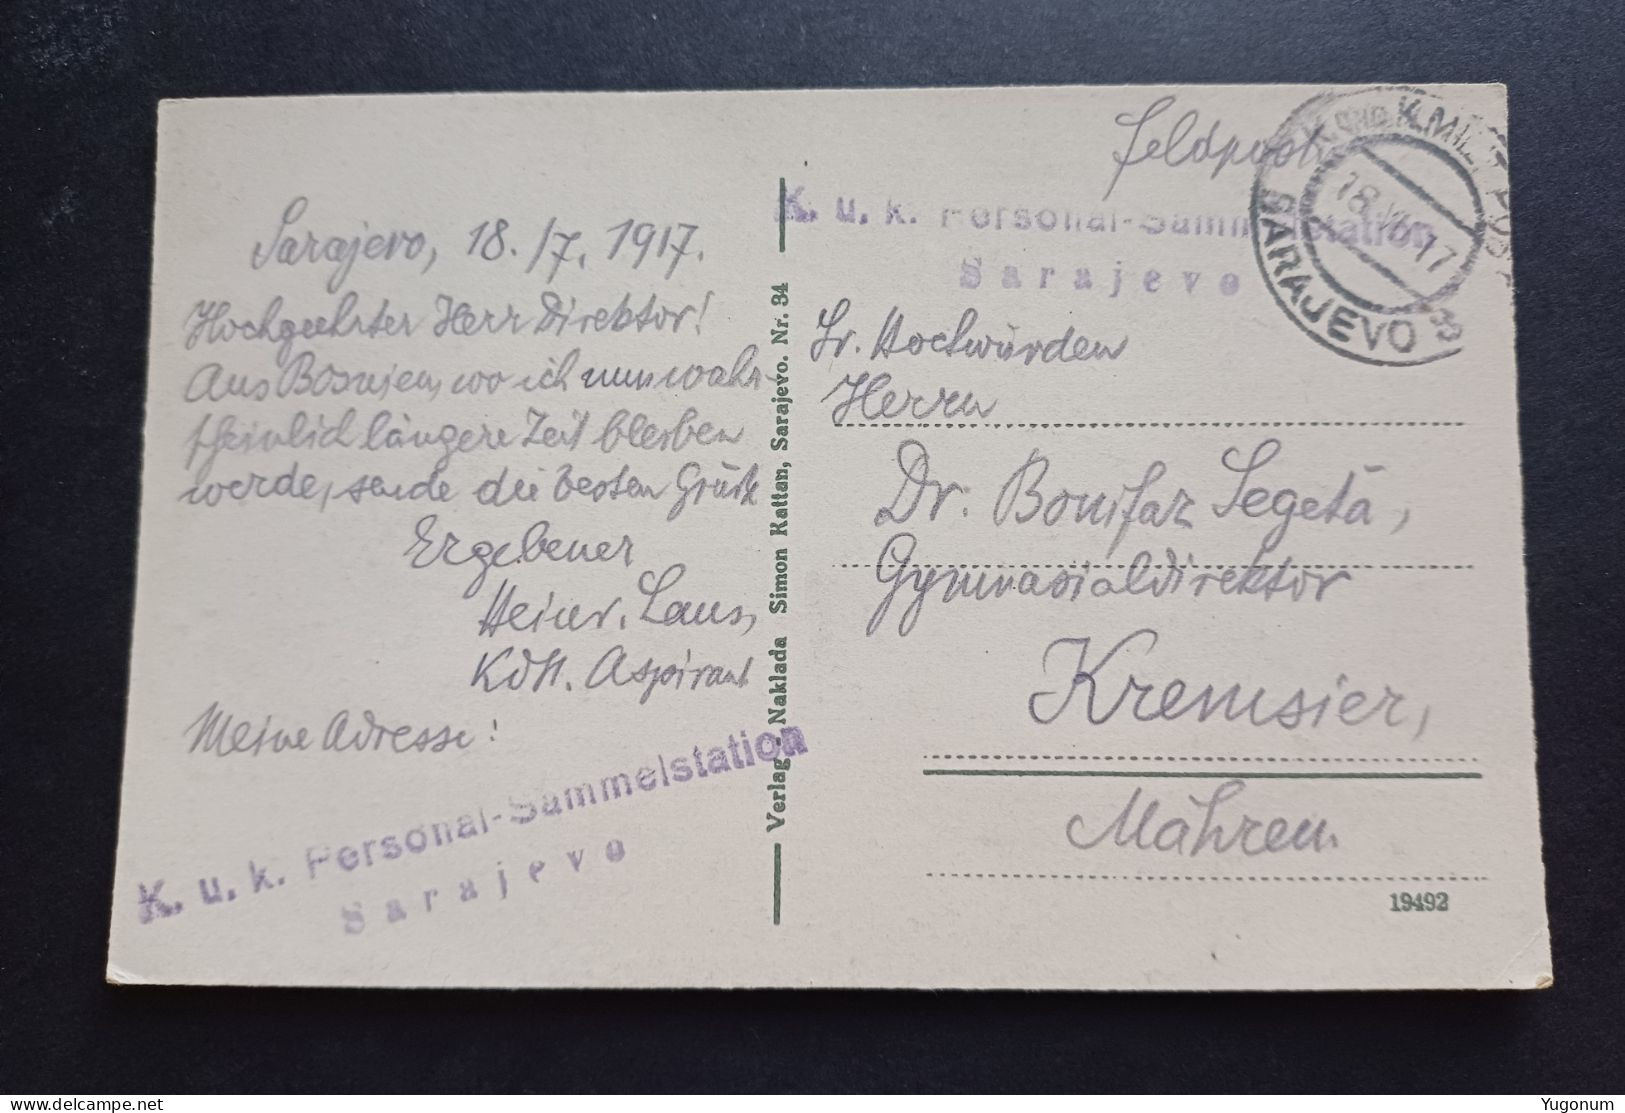 Sarajevo, 18./7. 1917.
Hochgeehrter Herr Direktor!
Aus Bosnien, wo ich nun wahr-
scheinlich längere Zeit bleiben
werde, sende die besten Grüße
Ergebener
Heinr. Laus,
Kdtt. Aspirant
Meine Adresse:
K. u. k. Personal-Sammelstation
Sarajevo
Verlag - Naklada Simon Kattan, Sarajevo. Nr. 34
Feldpost
K. u. k. Personal-Sammelstation
Sarajevo
K. UND K. MILIT. POST
18. VII. 17
SARAJEVO
Sr. Hochwürden
Herrn
Dr. Bonifaz Segeťa,
Gymnasialdirektor
Kremsier,
Mähren.
19492
Yugonum